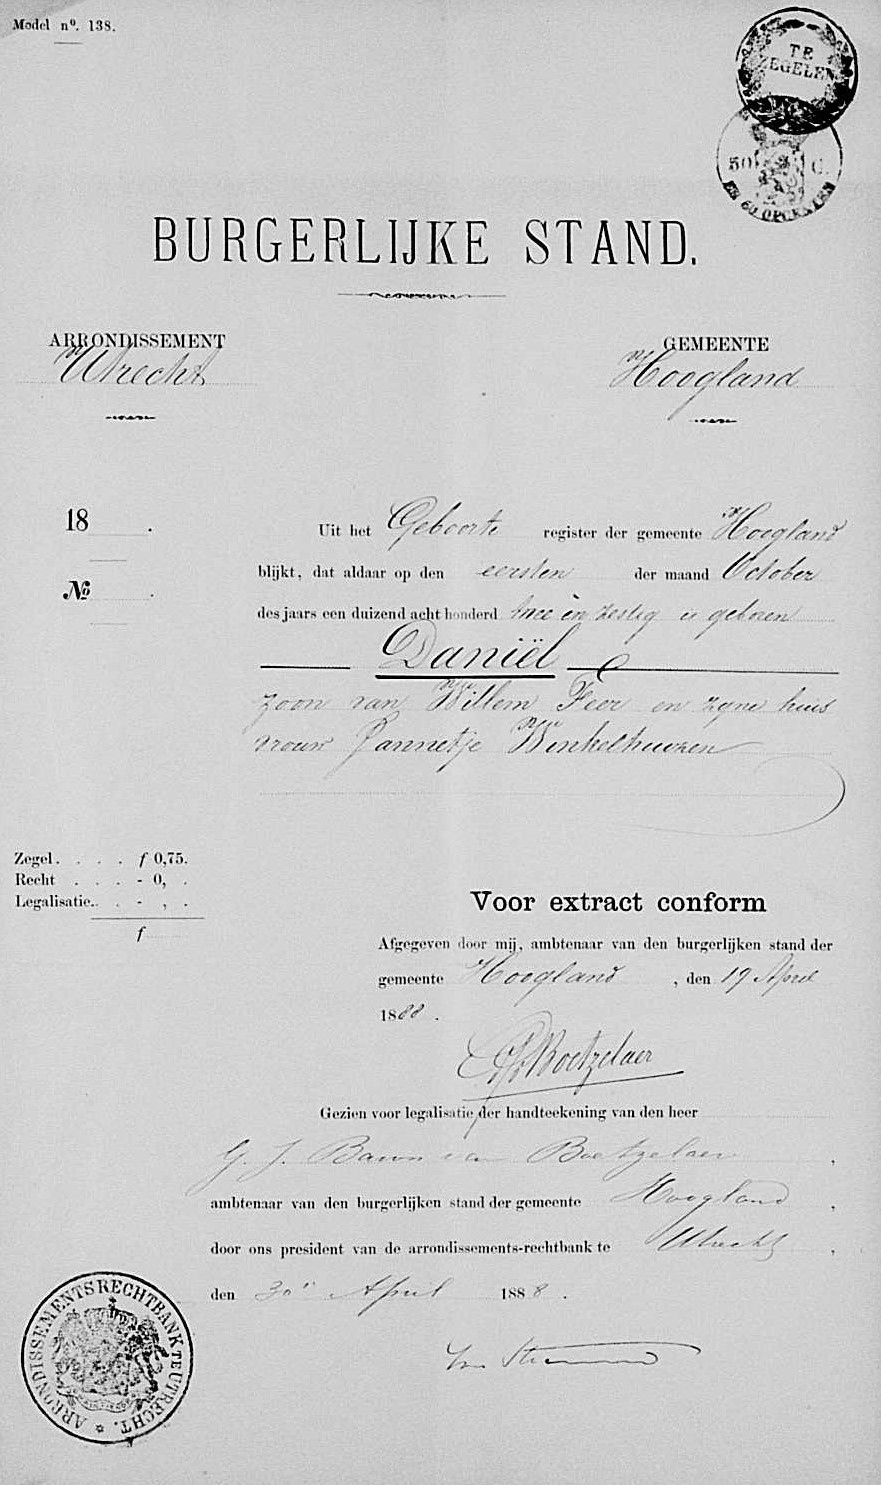 Model nº. 138.
TE
ZEGELEN
50 C.
EN 50 OPCENTEN
BURGERLIJKE STAND.
ARRONDISSEMENT GEMEENTE
Utrecht Hoogland
18 .
Nº .
Uit het Geboorte register der gemeente Hoogland
blijkt, dat aldaar op den eersten der maand October
des jaars een duizend acht honderd twee en zestig is geboren
Daniël
zoon van Willem Feer en zyne huis
vrouw Jannetje Winkelhuizen
Zegel. . . . f 0,75.
Recht . . . - 0, .
Legalisatie. . . - , .
f
Voor extract conform
Afgegeven door mij, ambtenaar van den burgerlijken stand der
gemeente Hoogland , den 19 April
1888 .
Boetzelaer
Gezien voor legalisatie der handteekening van den heer
G. J. Baron van Boetzelaer ,
ambtenaar van den burgerlijken stand der gemeente Hoogland ,
door ons president van de arrondissements-rechtbank te Utrecht ,
den 30n April 1888 .
ARRONDISSEMENTSRECHTBANK TE UTRECHT.